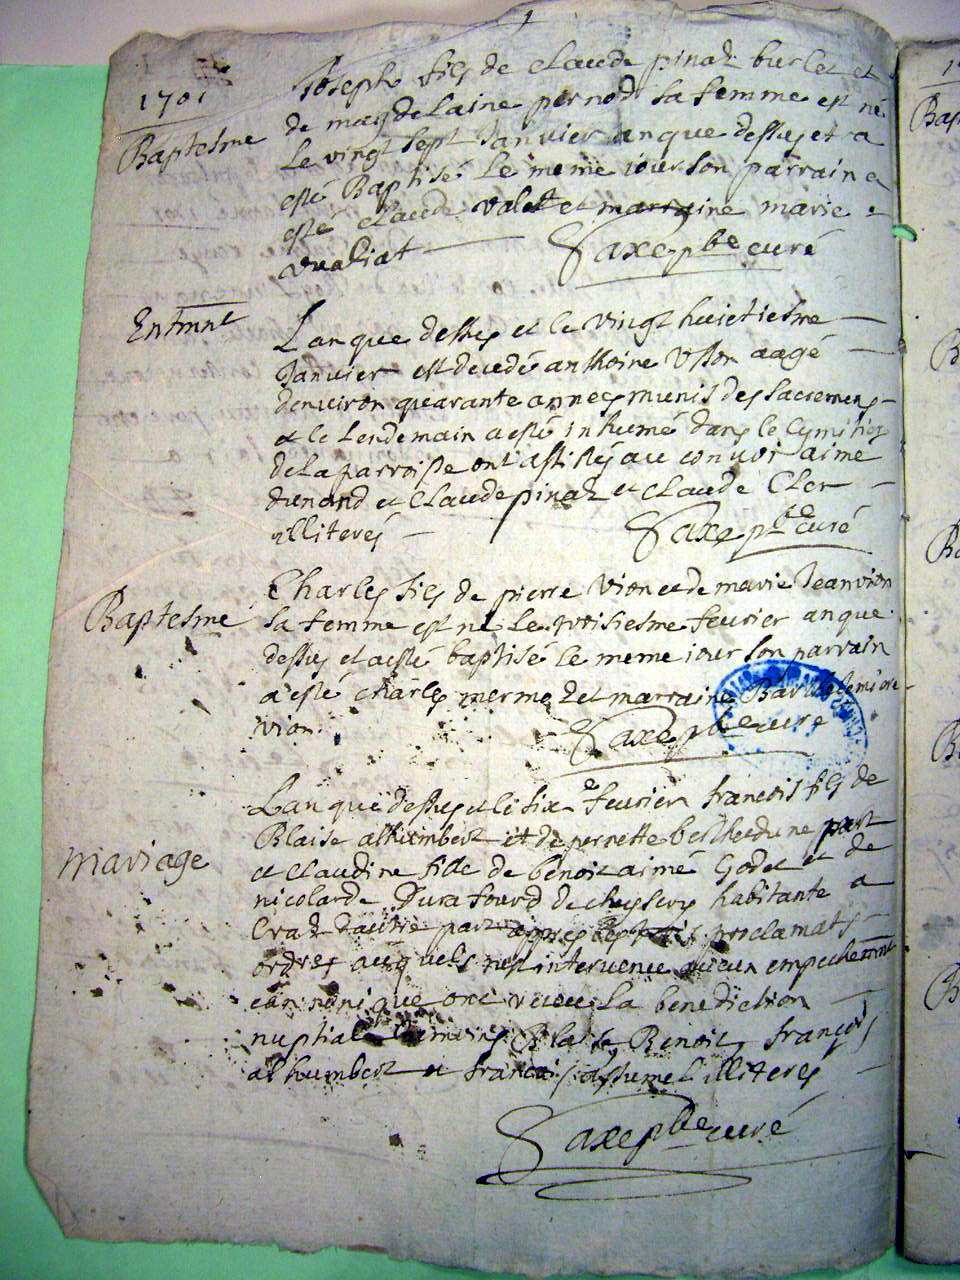 1701
Baptesme
Joseph fils de claude pinaz burlet et
de magdelaine pernod sa femme est né
le vingt sept Janvier an que dessus et a
esté Baptisé le meme iour son parrain a
esté claude valet et marraine marie
Saxe pbre curé
Entmnt
Lan que dessus et le vingt huictiesme
Janvier est decedé anthoine Vffon aagé
denviron quarante annees munis des sacremens
et le Lendemain a esté inhumé dans le Cymitiere
de la parroisse ont assistés au convoi aime
dunand et Claude pinaz et claude Cler
illiterés
Saxe pbre curé
Baptesme
Charles fils de pierre Vion et de marie Jeanvion
sa femme est né Le troisiesme fevrier an que
dessus et a esté baptisé le meme iour son parrain
a esté charles mermez et marraine Bartholemiere
vion
Saxe pbre curé
Mariage
Lan que dessus et le six fevrier francois fils de
Blaise alhumbert et de pernette berthet dune part
et claudine fille de benoit aimé Godet et de
nicolarde Durafourd de habitante a
Craz dautre part apres les proclamats
ordres ausquels nest intervenue aucun empechemnt
cannonique ont receu La benediction
nuptiale temoins Blaise Benoit, françois
alhumbert et francois illiterés
Saxe pbre curé